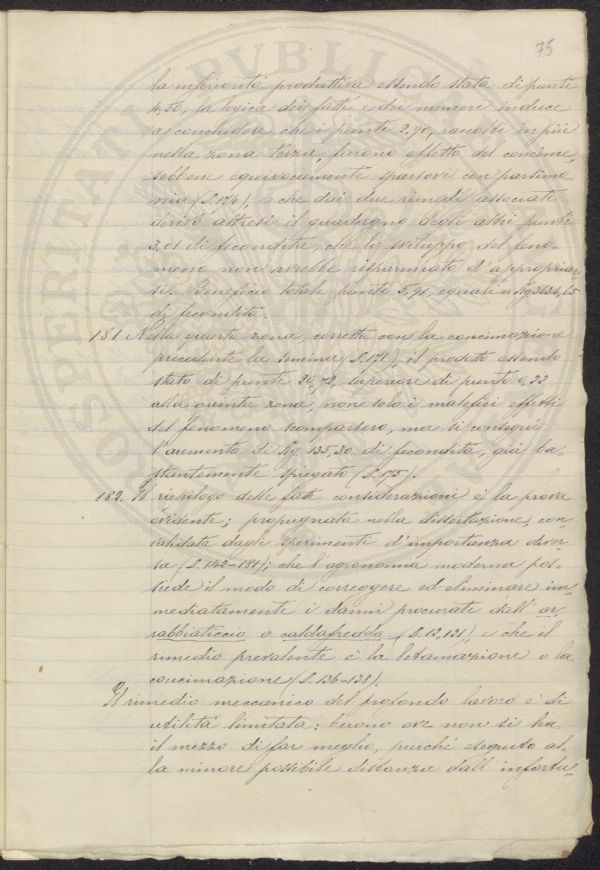 75
la inferiorità produttiva essendo stata di punti
4,50, la logica dei fatti e dei numeri induce
a concludere che i punti 2,90, raccolti in più
nella zona terza, furono effetto del concime,
sebbene equivocamente sparsovi con parsimo
nia (§.174), e che dai due rimedi associati
derivò altresì il guadagno degli altri punti
3,01 di fecondità, che lo sviluppo del feno-
meno non avrebbe risparmiato d'appropriar
si. Beneficio totale, punti 5,91, eguali a Kg 3634,65
di fecondità.
181 Nella quarta zona, corretta con la concimazione
precedente la semina (§.171), il prodotto essendo
stato di punti 20,72, superiore di punto 0,22
alla quinta zona, non solo i malefici effetti
del fenomeno scomparsero, ma si conseguì
l'aumento di Kg 135,30 di fecondità, già ba-
stantemente spiegato (§.175).
182. Il riepilogo delle fatte considerazioni è la prova
evidente; propugnata nella dissertazione, con
validata dagli sperimenti d'importanza diver
sa (§.142-181); che l'agronomia moderna pos-
siede il modo di correggere ed eliminare im-
mediatamente i danni procurati dall'ar-
rabbiaticcio o caldafredda (§.12,121), e che il
rimedio prevalente è la letamazione o la
concimazione (§.136-138).
Il rimedio meccanico del profondo lavoro è di
utilità limitata: buono ove non si ha
il mezzo di far meglio, purché eseguito al-
la minore possibile distanza dall'infortu-
PROSPERITATI PVBLICAE